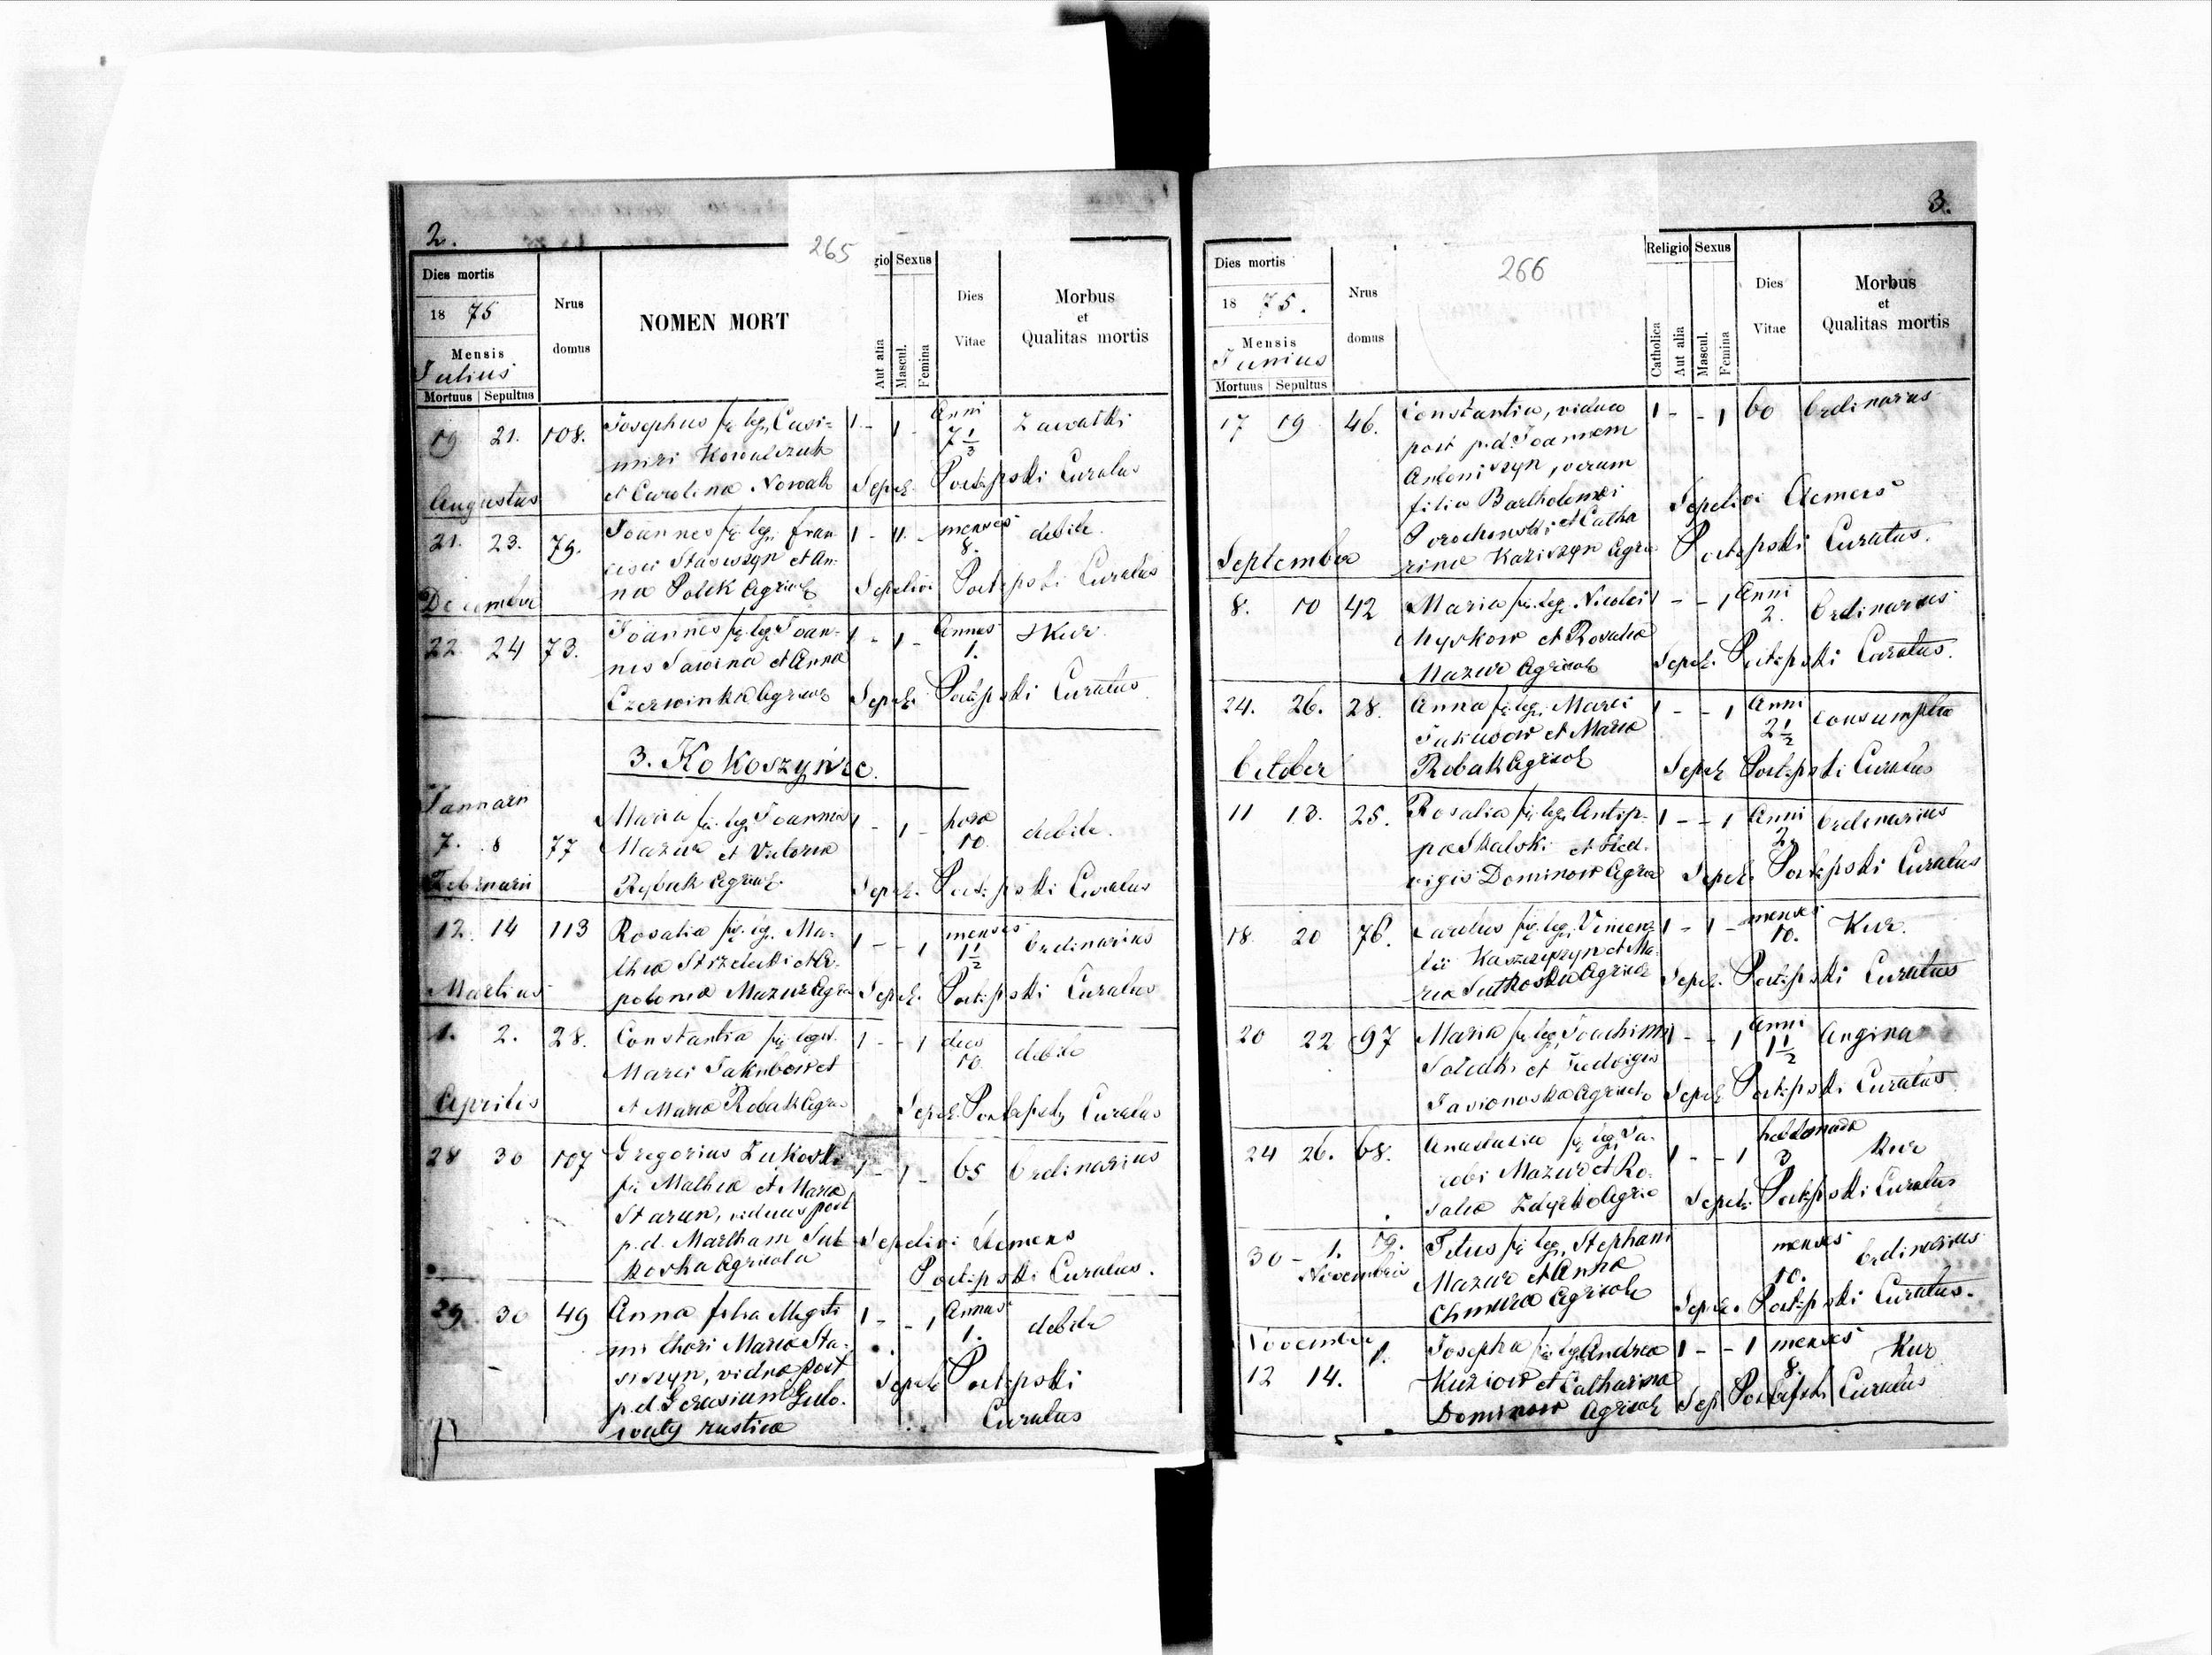 2.
265
Dies mortis
1875
Mensis
Julius
Mortuus Sepultus
Nrus domus
NOMEN MORT
gio Sexus
Aut alia
Mascul.
Femina
Dies Vitae
Morbus
et
Qualitas mortis
19 21. 108. Josephus fil. leg. Casi- 1 - 1 - Anni 7 1/3
miri Kowalczuk
et Carolina Nowak Sepel. Curatus
Augustus
21. 23. 79. Joannes fil. leg. Fran- 1 - 1 - menses 8. debile.
cisci Stasiszyn et An-
na Polek Agricol Sepelivi Curatus
December
22 24 73. Joannes fil. leg. Joan- 1 - 1 - Annus 1. Kur
nis Sawina et Anna
Czerwinka Agricol Sepel. Curatus
3. Kokoszyńce.
Januarii
7. 8 77 Maria fil. leg. Joannis 1 - 1 - hora 10. debile.
Mazur et
Rybak Agricol. Sepel. Curatus
Februarii
12. 14 113 Rosalia fil. leg. Ma- 1 - - 1 menses 1 1/2 Ordinarius
thea Strzelecki et A-
polonia Mazur Agri Sepel. Curatus
Martius
1. 2. 28. Constantia fil. legit. 1 - - 1 dies 10. debile
Marci Jakubow et
et Maria Robak Agri Sepel. Curatus
Aprilis
28 30 107 Gregorius Zukoski 1 - 1 - 65 Ordinarius
fil. Mathea et Maria
Starun, viduus post
p.d. Martham Sut- Sepelivi Clemens
koska Agricola Curatus.
29. 30 49 Anna filia Magist 1 - - 1 Annus 1. debile
Maria Sta-
siszyn, vidua post Sepel
p.d.
rustica Curatus
3.
266
Dies mortis
1875.
Mensis
Junius
Mortuus Sepultus
Nrus domus
Religio Sexus
Catholica
Aut alia
Mascul.
Femina
Dies Vitae
Morbus
et
Qualitas mortis
17 19 46. Constantia, vidua 1 - - 1 60 Ordinarius
post p.d. Joannem
Antoniszyn, verum
filia Bartholomei Sepelivi Clemens
et Catha
rina Kaziszyn Agri Curatus.
September
8. 10 42 Maria fil. leg. Nicolai 1 - - 1 Anni 2. Ordinarius
Myskow et Rosalia
Mazur Agricol Sepel. Curatus.
24. 26. 28. Anna fil. leg. Marci 1 - - 1 Anni 2 1/2 consumptio
Jakubow et Maria
Robak Agricol Sepel Curatus
October
11 13. 25. Rosalia fil. leg. Antip- 1 - - 1 Anni 2. Ordinarius
pa Skalski et Hed-
vigis Dominow Agri Sepel. Curatus
18. 20 76. Carolus fil. leg. Vincen- 1 - 1 - menses 10. Kur.
tii et Ma-
ria Sutkoska Agricol Sepel. Curatus
20 22 97 Maria fil. leg. Joachimi 1 - - 1 Anni 1 1/2 Angina
et Hedvigis
Agricol Sepel Curatus
24 26. 68. Anastasia fil. leg. Ja- 1 - - 1 hebdomada 3 Kur
cobi Mazur et Ro-
salia Agric Sepel. Curatus
30 - 1. Novembris 19. Titus fil. leg. Stephani menses 10. Ordinarius
Mazur et Anna
Chmura Agricol Sepel. Curatus.
November
12 14. 1. Josepha fil. leg. Andrea 1 - - 1 menses 8. Kur
Kuziow et Catharina
Dominow Agricol Sep. Curatus